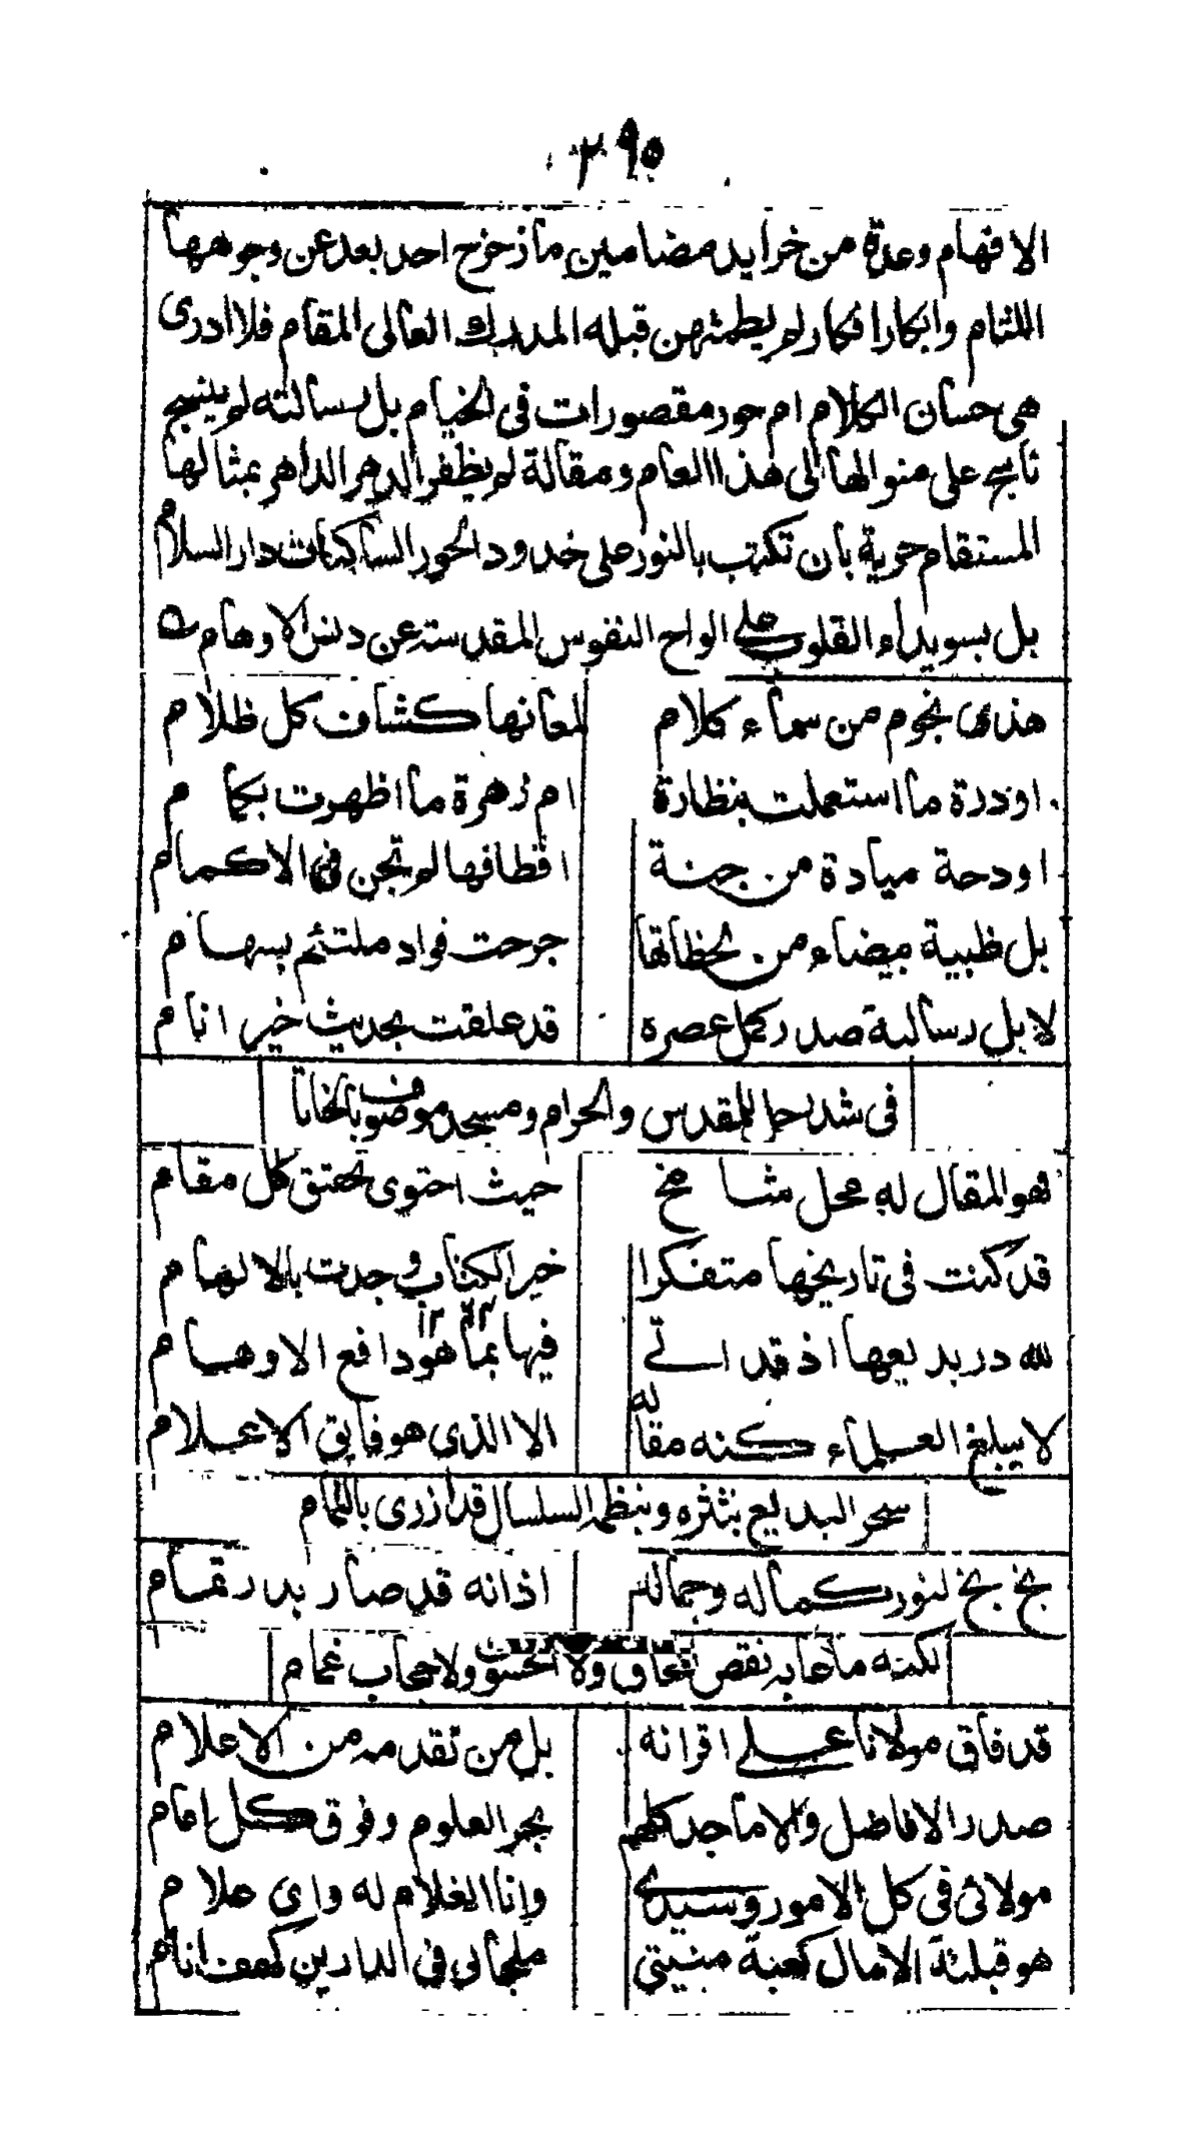 ٣٩٥
الافهام وعدة من خرايد مضامين ما زحزح احد بعد عن وجوهها
اللثام وابكار افكار لم يطمثهن قبله المدرك العالى المقام فلا ادرى
هى حسان الكلام ام حور مقصورات فى الخيام بل رسالته لم ينسج
ناسج على منوالها الى هذا العام ومقالة لم يظفر الدهر الداهر بمثالها
المستقام حرية بان تكتب بالنور على خدود الحور الساكنات دار السلام
بل بسويداء القلوب على الواح النفوس المقدسته عن دنس الاوهام
هذى نجوم من سماء كلام لمعانها كشاف كل ظلام
او درة ما استعملت بنظارة ام زهرة ما اظهرت بكمام
او دحة ميادة من جنة اقطافها لم تجن فى الاكمام
بل ظبية بيضاء من لحظاتها جرحت فواد ملتئم بسهام
لا بل رسالة صدر كمل عصره قد علقت بحديث خير انام
فى شد رحا للمقدس والحرام ومسجد موصوف بالخاتا
فهو المقال له محل شامخ حيث احتوى لحقتق كل مقام
قد كنت فى تاريخها متفكرا خير الكتاب وجدت بالالهام
لله در بديعها اذ قد اتے فيها بما هو دافع الاوهام
لا يبلغ العلماء كنه مقاله الا الذى هو فايق الاعلام
سحر البديع بنثره وبنظمه السلسال قد ازرى بالتمام
بخ بخ لنور كماله وجماله اذ انه قد صار بدر تمام
لكنه ما عابه نقص المحاق ولا الخسوف ولا حجاب غمام
قد فاق مولانا علے اقرانه بل من تقدمه من الاعلام
صدر الافاضل والاماجد كلهم بحر العلوم وفوق كل امام
مولائى فى كل الامور وسيدے وانا الغلام له واى غلام
هو قبلة الامال كعبة منيتى ملجالى فى الدارين كهف انام